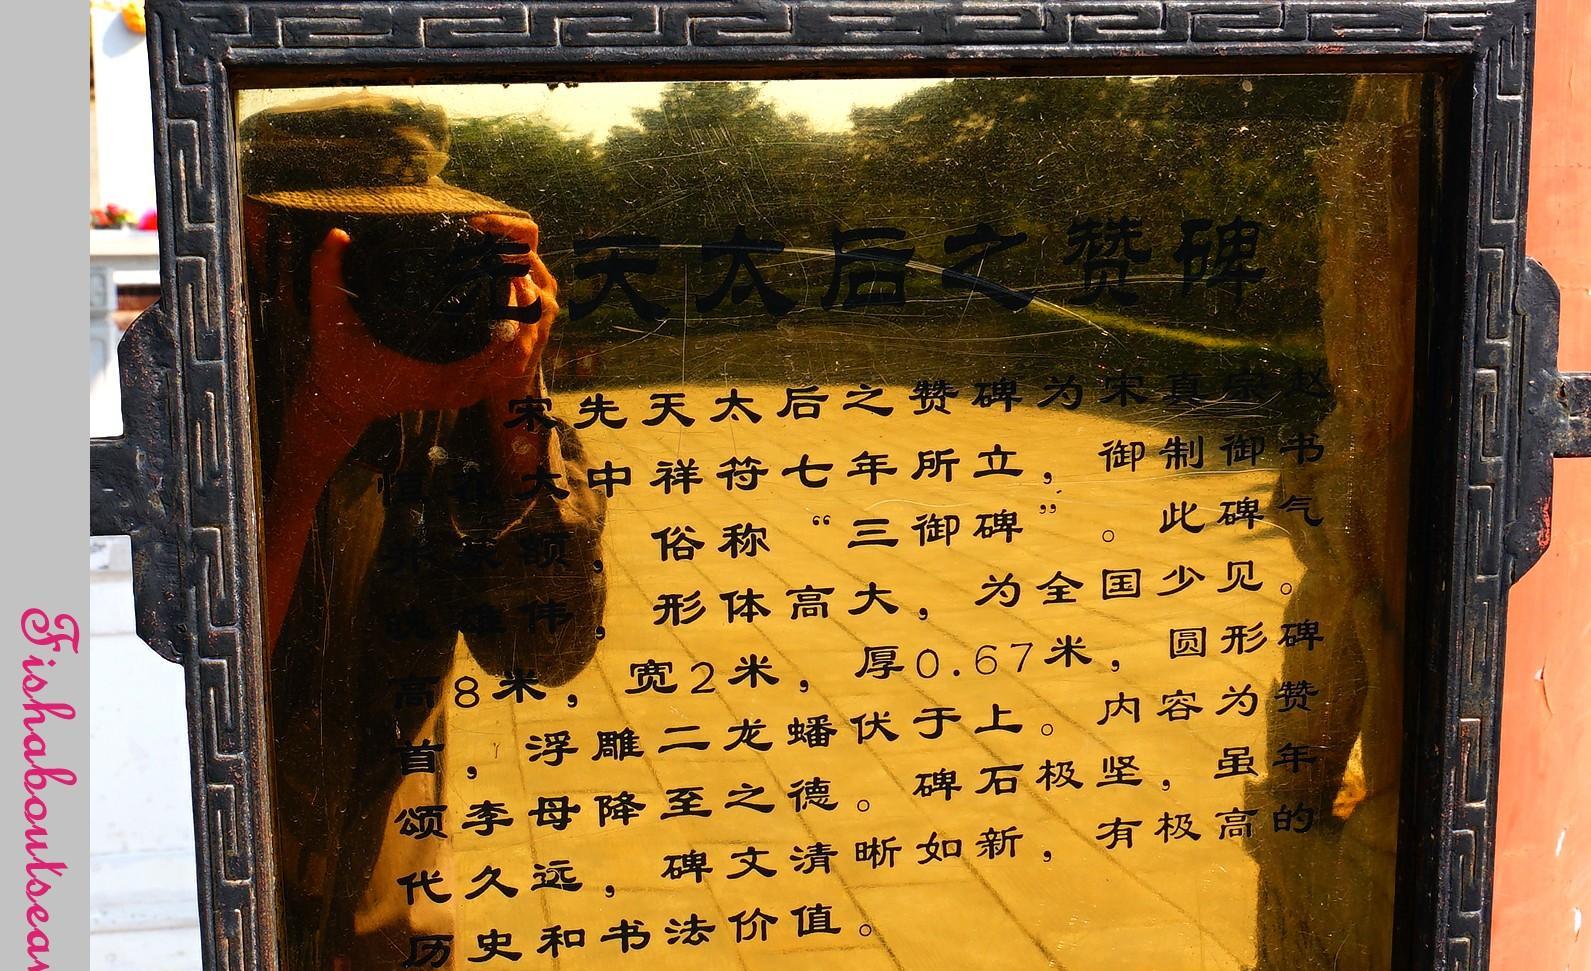 先天太后之赞碑
宋先天太后之赞碑为宋真宗赵
恒在大中祥符七年所立，御制御书
并篆额，俗称“三御碑”。此碑气
魄雄伟，形体高大，为全国少见。
高8米，宽2米，厚0.67米，圆形碑
首，浮雕二龙蟠伏于上。内容为赞
颂李母降至之德。碑石极坚，虽年
代久远，碑文清晰如新，有极高的
历史和书法价值。
Fishaboutsea